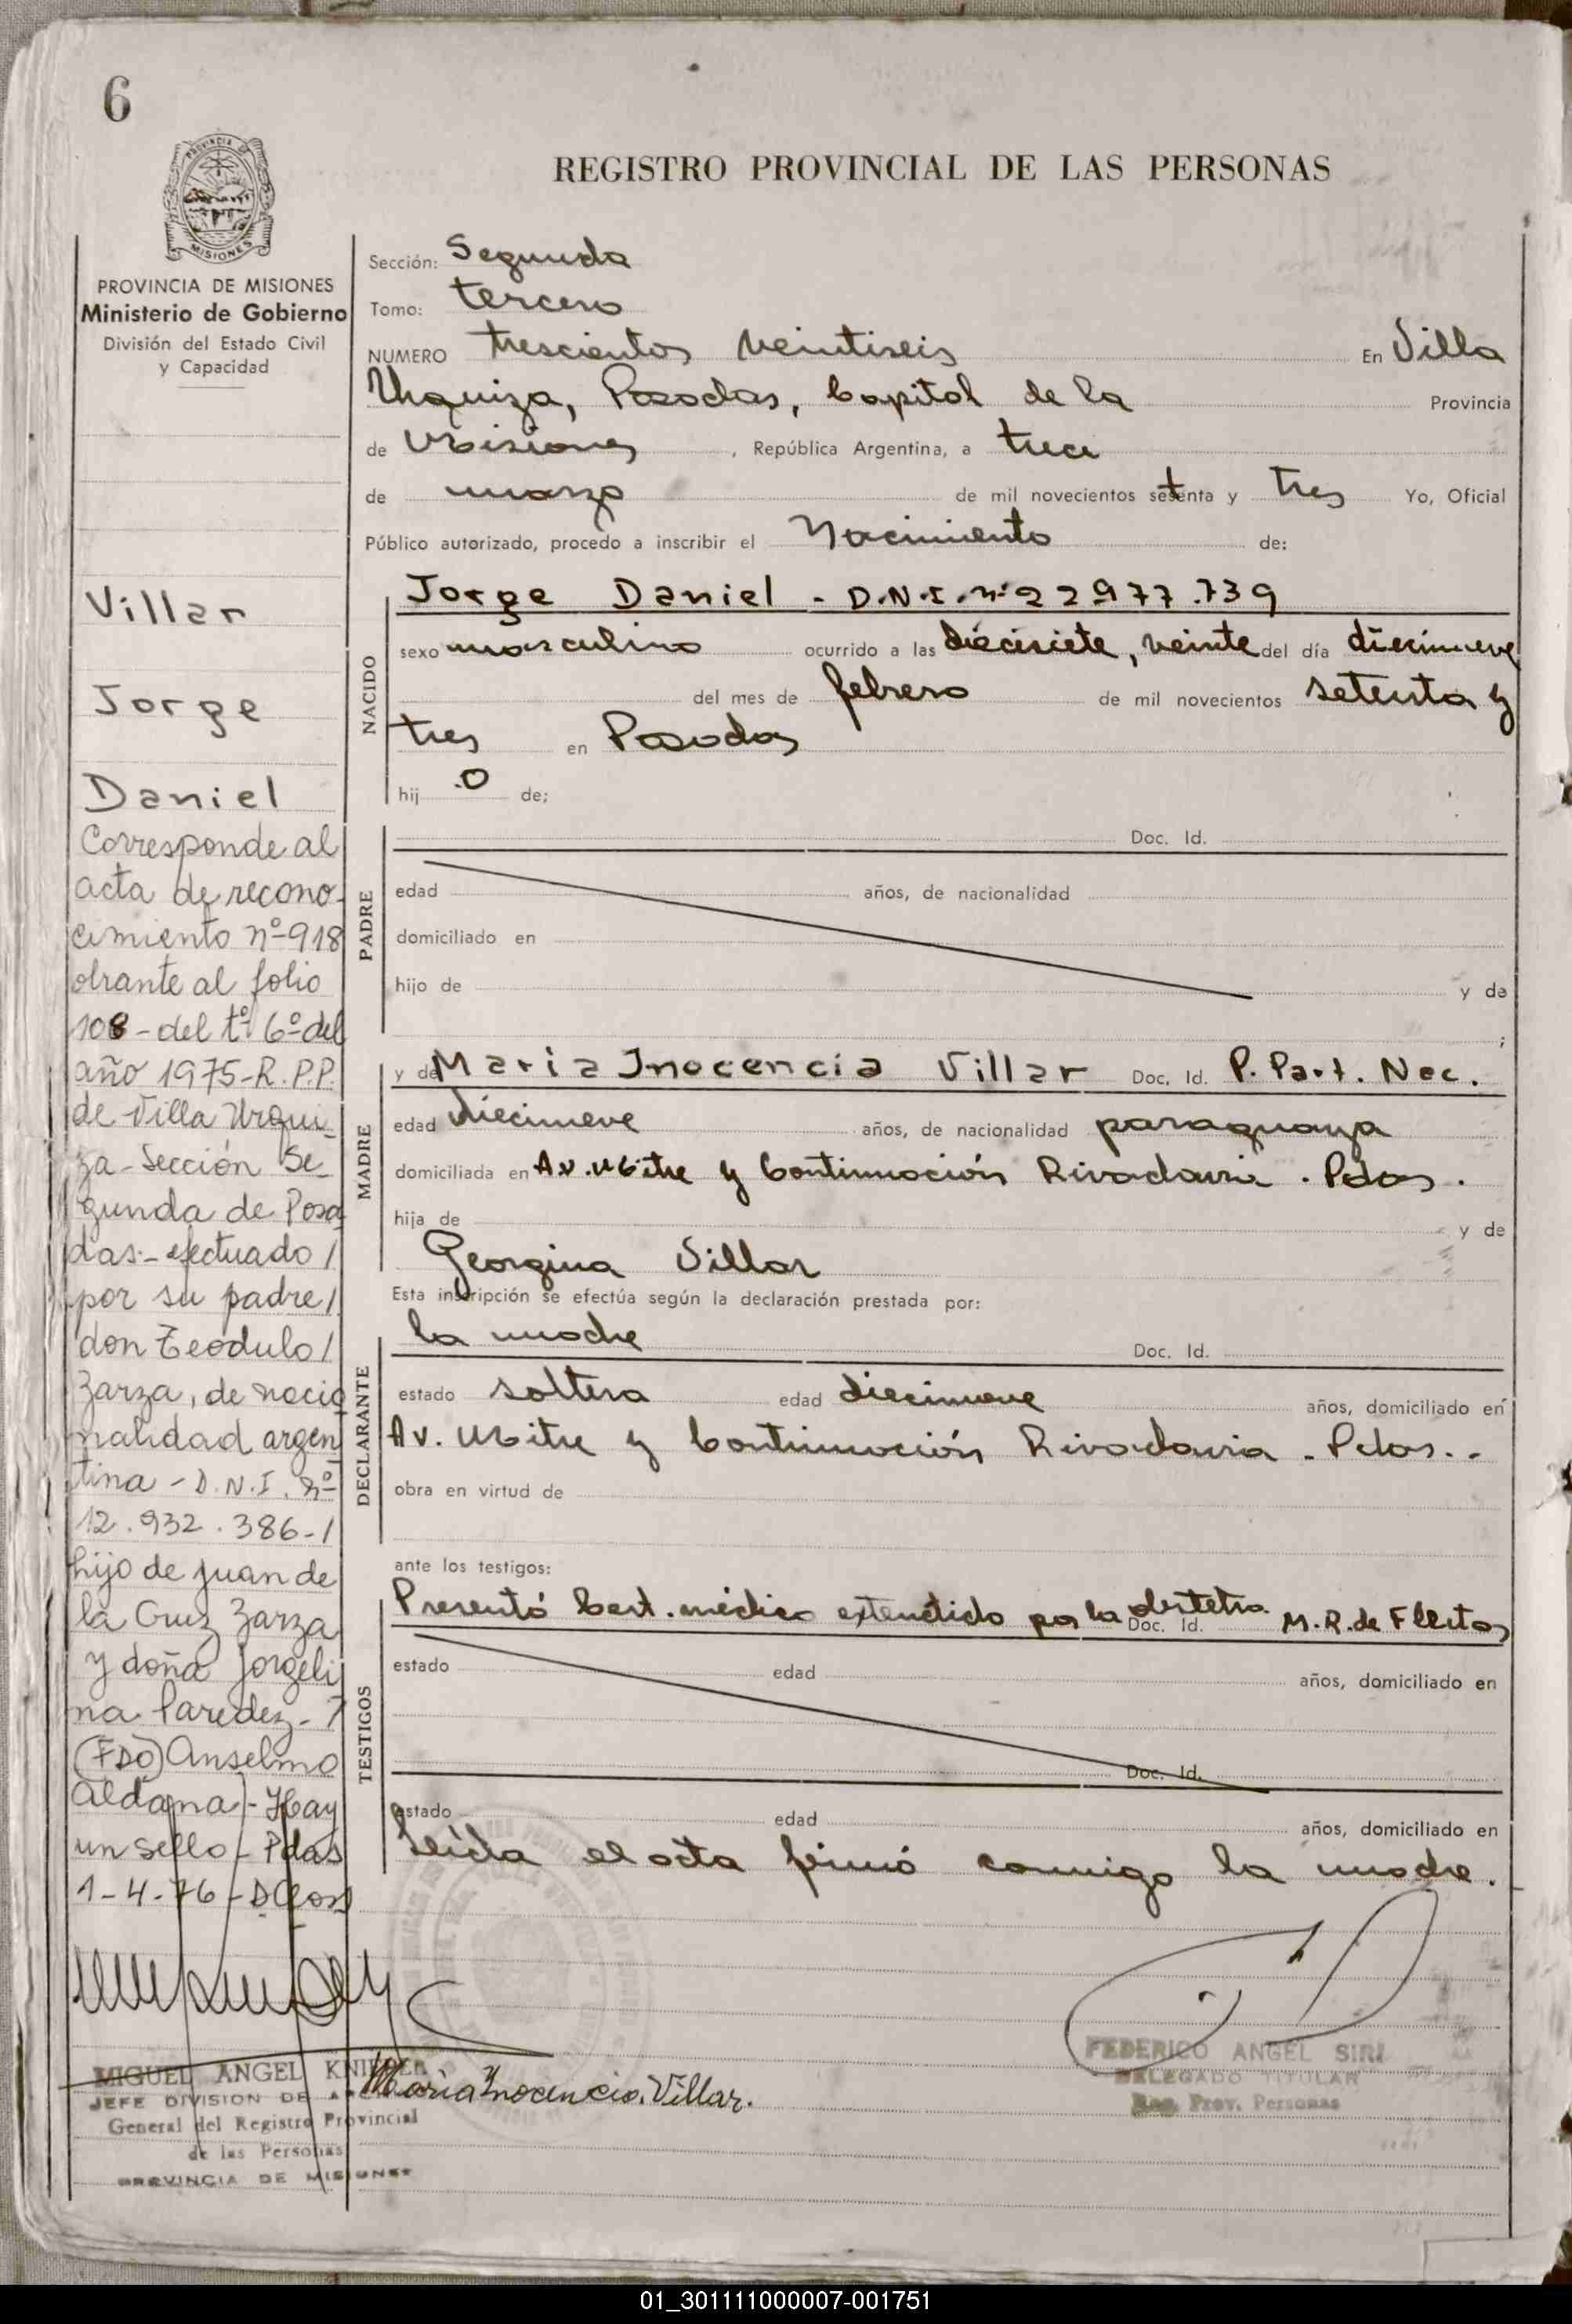 6
PROVINCIA DE
MISIONES
REGISTRO PROVINCIAL DE LAS PERSONAS
PROVINCIA DE MISIONES
Ministerio de Gobierno
División del Estado Civil
y Capacidad
Villar
Jorge
Daniel
Corresponde al
acta de recono-
cimiento nº 918
obrante al folio
108 - del tº 6º del
año 1975 - R.P.P.
de Villa Urqui-
za - Sección Se-
gunda de Posa
das - efectuado /
por su padre /
don Teódulo /
Zarza, de nacio
nalidad argen
tina - D.N.I. nº
12.932.386 - /
hijo de Juan de
la Cruz Zarza
y doña Jorgeli
na Paredez -
(FDO) Anselmo
Aldana) - Hay
un sello - Pdas
1 - 4 - 76 -
MIGUEL ANGEL
JEFE DIVISION DE
General del Registro Provincial
de las Personas
PROVINCIA DE MISIONES
Sección: Segunda
Tomo: tercero
NUMERO trescientos veintiseis En Villa
Urquiza, Posadas, Capital de la Provincia
de Misiones, República Argentina, a trece
de marzo de mil novecientos setenta y tres Yo, Oficial
Público autorizado, procedo a inscribir el Nacimiento de:
NACIDO
Jorge Daniel - D.N.I. nº 22977.739
sexo masculino ocurrido a las diecisiete, veinte del día diecinueve
del mes de febrero de mil novecientos setenta y
tres en Posadas
hij .o de;
PADRE
Doc. Id.
edad años, de nacionalidad
domiciliado en
hijo de y de
;
MADRE
y de Maria Inocencia Villar Doc. Id. P. Part. Nac.
edad diecinueve años, de nacionalidad paraguaya
domiciliada en Av. Mitre y Continuación Rivadavia . Pdas.
hija de y de
Georgina Villar
Esta inscripción se efectúa según la declaración prestada por:
DECLARANTE
la madre Doc. Id.
estado soltera edad diecinueve años, domiciliado en
Av. Mitre y Continuación Rivadavia - Pdas. -
obra en virtud de
ante los testigos:
TESTIGOS
Presentó Cert. médico extendido por la obstetra Doc. Id. M.R. de Fleitas
estado edad años, domiciliado en
Doc. Id.
estado edad años, domiciliado en
Leída el acta firmó conmigo la madre.
Maria Inocencia Villar.
FEDERICO ANGEL SIRI
DELEGADO TITULAR
Reg. Prov. Personas
01_301111000007-001751